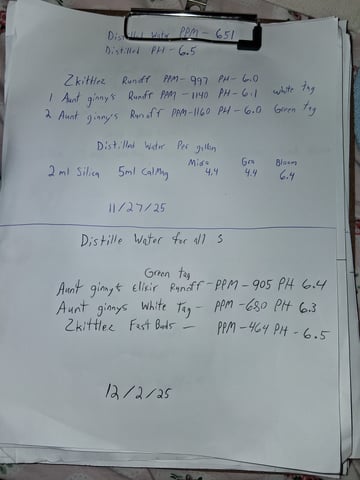 Distilled Water PPM - 651
Distilled PH - 6.5
Zkittlez Runoff PPM - 997 PH - 6.0
1 Aunt ginny's Runoff PPM - 1140 PH - 6.1 White tag
2 Aunt ginny's Runoff PPM - 1160 PH - 6.0 Green tag
Distilled Water Per gallon
Micro Gro Bloom
2 ml Silica 5ml CalMag 4.4 4.4 6.4
11/27/25
Distille Water for all 3
Green tag
Aunt ginny's Elixir Runoff - PPM - 905 PH 6.4
Aunt ginnys White Tag - PPM - 680 PH 6.3
Zkittlez Fast Buds - PPM - 464 PH - 6.5
12/2/25